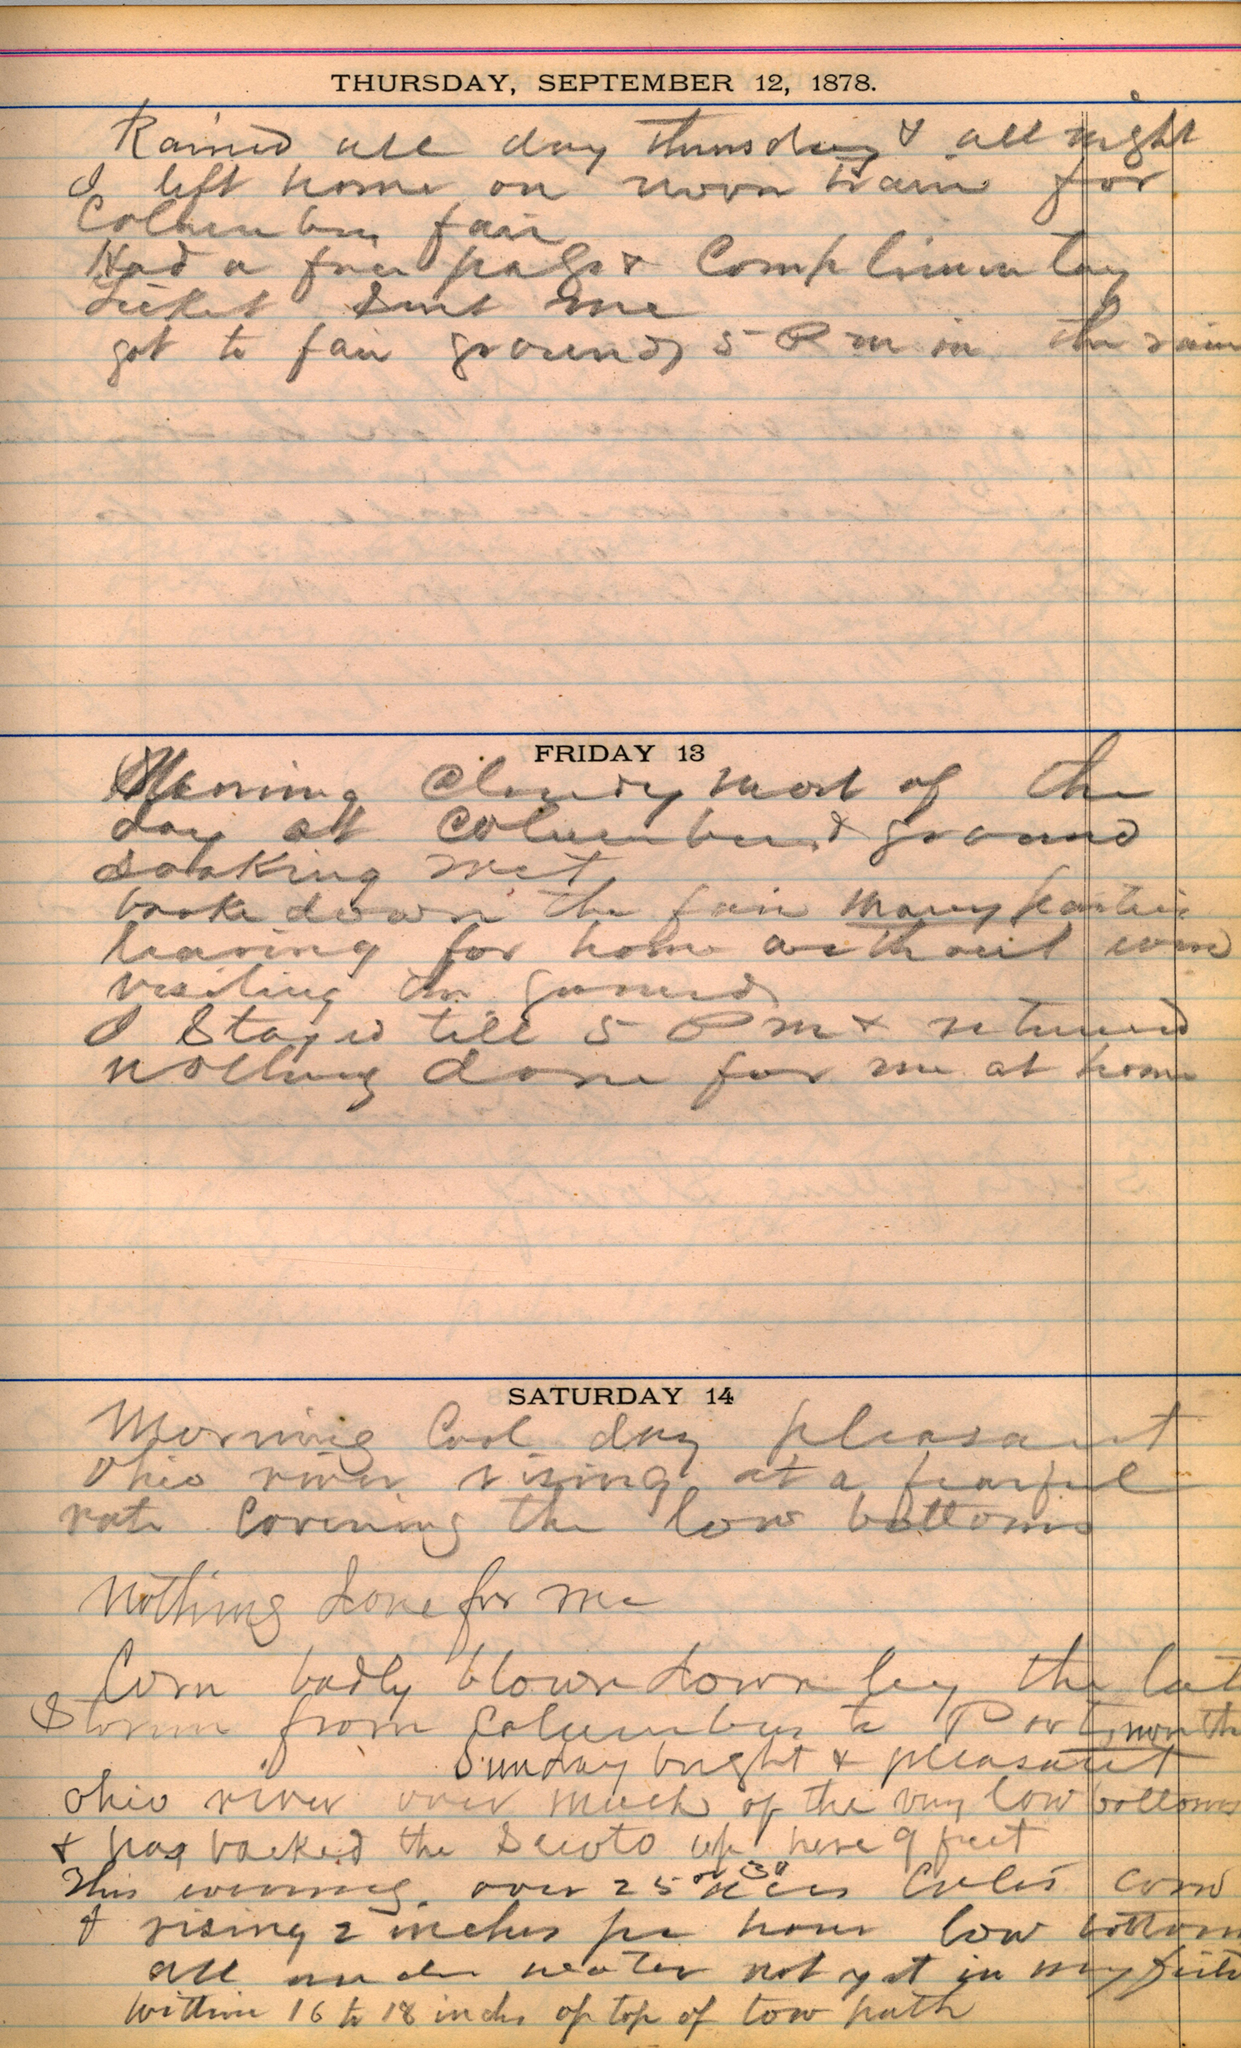 THURSDAY, SEPTEMBER 12, 1878.
Rained all day thursday & all night
I left home on noon train for
Columbus fair
Had a free pass & Complimentay
ticket Sent me
got to fair grounds 5 P m in the rain
FRIDAY 13
Morning Cloudy most of the
day at Columbus & ground
soaking wet
broke down the fair many parties
leaving for home without even
visiting the grounds
I Stayed till 5 P m & returned
nothing done for me at home
SATURDAY 14
Morning Cool day pleasant
Ohio river rising at a fearful
rate Covering the low bottoms
Nothing done for me
Corn badly blown down by the late
Storm from Columbus to Portsmouth
Sunday bright & pleasant
Ohio river over much of the very low bottoms
& has backed the Scioto up here 9 feet
This evening over 25 or 30 acres Coles corn
& rising 2 inches per hour low bottom
all under water not yet in my field
within 16 to 18 inchs of top of tow path